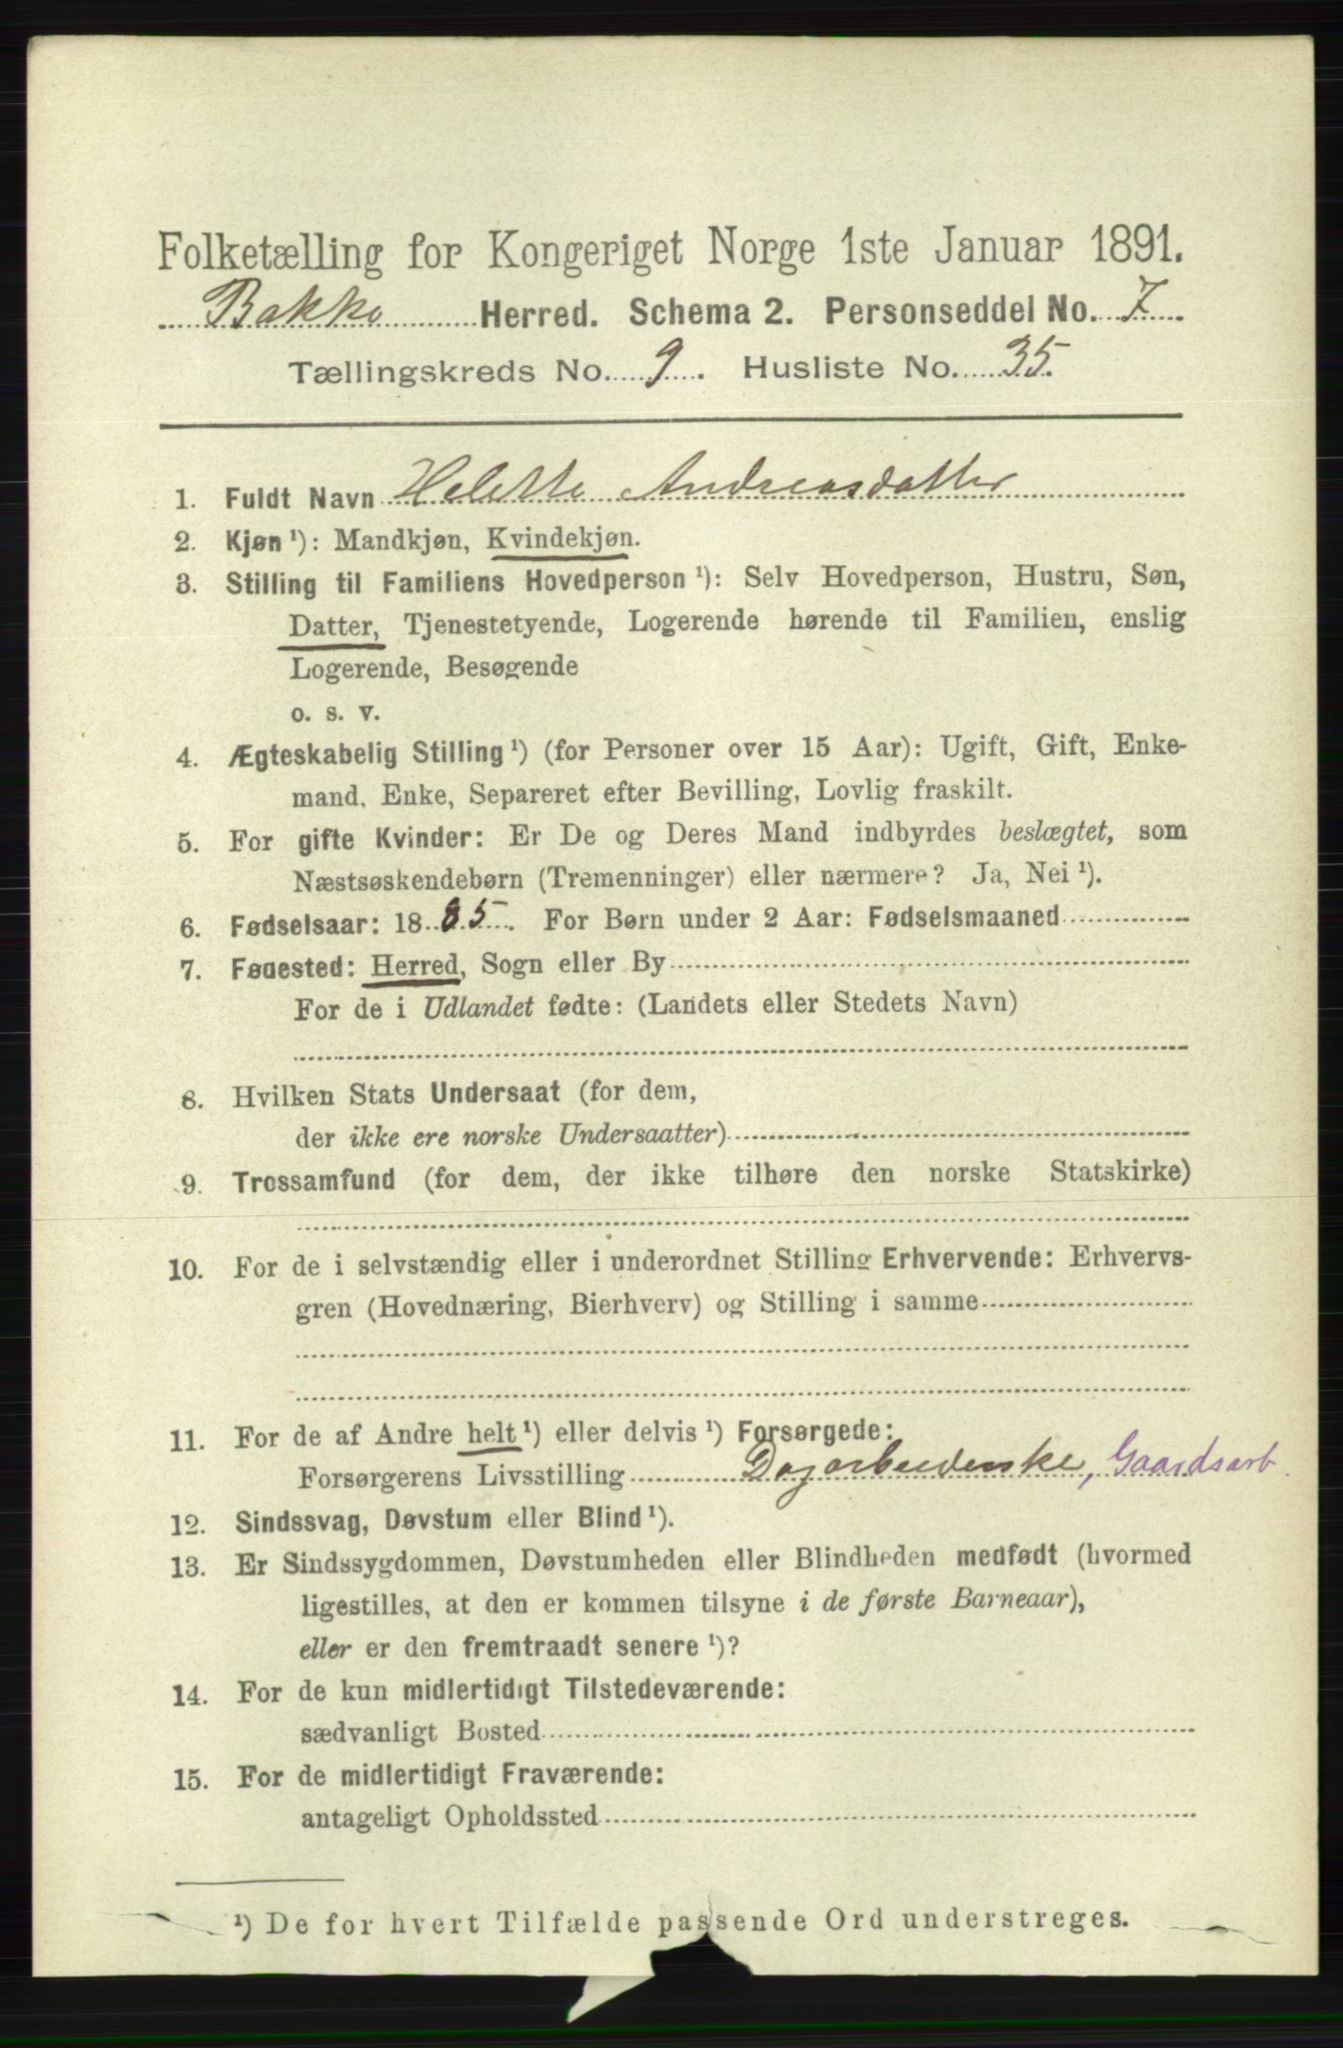 Folketælling for Kongeriget Norge 1ste Januar 1891.
Bakke Herred. Schema 2. Personseddel No. 7
Tællingskreds No. 9. Husliste No. 35.
1. Fuldt Navn Helette Andreasdatter
2. Kjøn ¹): Mandkjøn, Kvindekjøn.
3. Stilling til Familiens Hovedperson ¹): Selv Hovedperson, Hustru, Søn,
Datter, Tjenestetyende, Logerende hørende til Familien, enslig
Logerende, Besøgende
o. s. v.
4. Ægteskabelig Stilling ¹) (for Personer over 15 Aar): Ugift, Gift, Enke-
mand, Enke, Separeret efter Bevilling, Lovlig fraskilt.
5. For gifte Kvinder: Er De og Deres Mand indbyrdes beslægtet, som
Næstsøskendebørn (Tremenninger) eller nærmere? Ja, Nei ¹).
6. Fødselsaar: 1885. For Børn under 2 Aar: Fødselsmaaned
7. Fødested: Herred, Sogn eller By
For de i Udlandet fødte: (Landets eller Stedets Navn)
8. Hvilken Stats Undersaat (for dem,
der ikke ere norske Undersaatter)
9. Trossamfund (for dem, der ikke tilhøre den norske Statskirke)
10. For de i selvstændig eller i underordnet Stilling Erhvervende: Erhvervs-
gren (Hovednæring, Bierhverv) og Stilling i samme
11. For de af Andre helt ¹) eller delvis ¹) Forsørgede:
Forsørgerens Livsstilling Dagarbeiderske, Gaardsarb.
12. Sindssvag, Døvstum eller Blind ¹).
13. Er Sindssygdommen, Døvstumheden eller Blindheden medfødt (hvormed
ligestilles, at den er kommen tilsyne i de første Barneaar),
eller er den fremtraadt senere ¹)?
14. For de kun midlertidigt Tilstedeværende:
sædvanligt Bosted
15. For de midlertidigt Fraværende:
antageligt Opholdssted
¹) De for hvert Tilfælde passende Ord understreges.